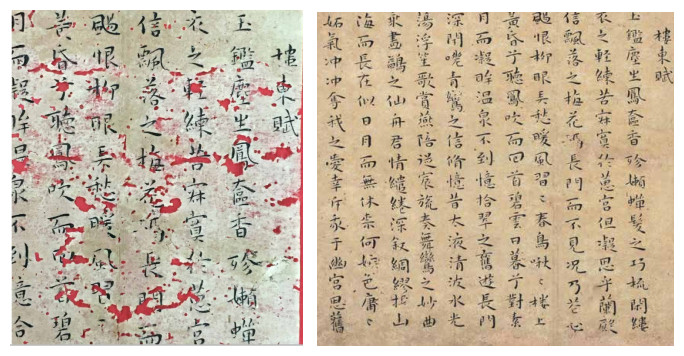 樓東賦
玉鑑塵生鳳奩香殄嬾蟬
衣之輕練苦寂寞於蕙宮
信飄落之梅花隔長門而
颺恨柳眼弄愁暖風習〻
黃昏兮聽鳳吹而回首碧
月而凝眸溫泉不到憶拾
樓東賦
玉鑑塵生鳳奩香殄嬾蟬鬢之巧梳閑縷
衣之輕練苦寂寞於蕙宮但凝思乎蘭殿
信飄落之梅花隔長門而不見況乃花心
颺恨柳眼弄愁暖風習〻春鳥啾〻樓上
黃昏兮聽鳳吹而回首碧雲日暮兮對素
月而凝眸溫泉不到憶拾翠之舊遊長門
深閉嗟青鸞之信脩憶昔太液清波水光
蕩浮笙歌賞燕陪從宸旒奏舞鸞之妙曲
乘畫鷁之仙舟君情繾綣深敘綢繆誓山
海而長在似日月而無休柰何妬色庸〻
妬氣冲冲奪我之愛幸斥我于幽宮思舊